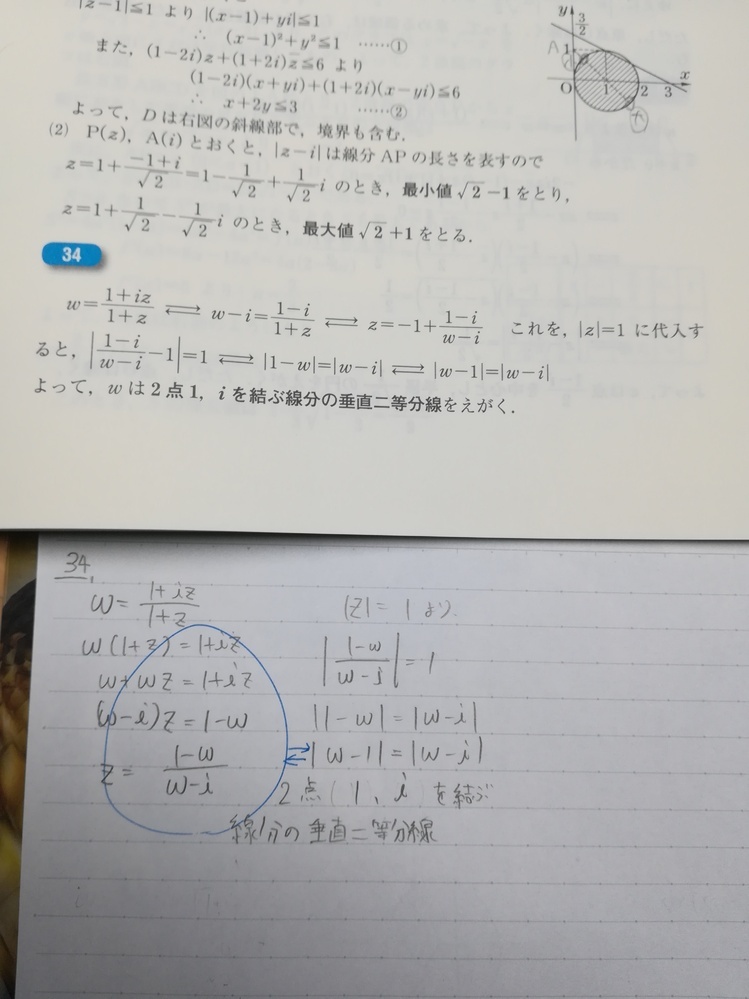 |z−1|≦1 より |(x−1)+yi|≦1
∴ (x−1)²+y²≦1 ……①
また，(1−2i)z+(1+2i)z̄≦6 より
(1−2i)(x+yi)+(1+2i)(x−yi)≦6
∴ x+2y≦3 ……②
よって，D は右図の斜線部で，境界も含む．
y 3/2 A 1 O 1 2 3 x
(2) P(z)，A(i) とおくと，|z−i| は線分 AP の長さを表すので
z=1+(−1+i)/√2=1−1/√2+1/√2 i のとき，最小値 √2−1 をとり，
z=1+1/√2−1/√2 i のとき，最大値 √2+1 をとる．
34
w=(1+iz)/(1+z) ⟺ w−i=(1−i)/(1+z) ⟺ z=−1+(1−i)/(w−i) これを，|z|=1 に代入す
ると，|(1−i)/(w−i)−1|=1 ⟺ |1−w|=|w−i| ⟺ |w−1|=|w−i|
よって，w は 2 点 1，i を結ぶ線分の垂直二等分線をえがく．
34
w=(1+iz)/(1+z)
w(1+z)=1+iz
w+wz=1+iz
(w−i)z=1−w
z=(1−w)/(w−i)
|z|=1 より.
|(1−w)/(w−i)|=1
|1−w|=|w−i|
⇄ |w−1|=|w−i|
2点(1、i)を結ぶ
線分の垂直二等分線